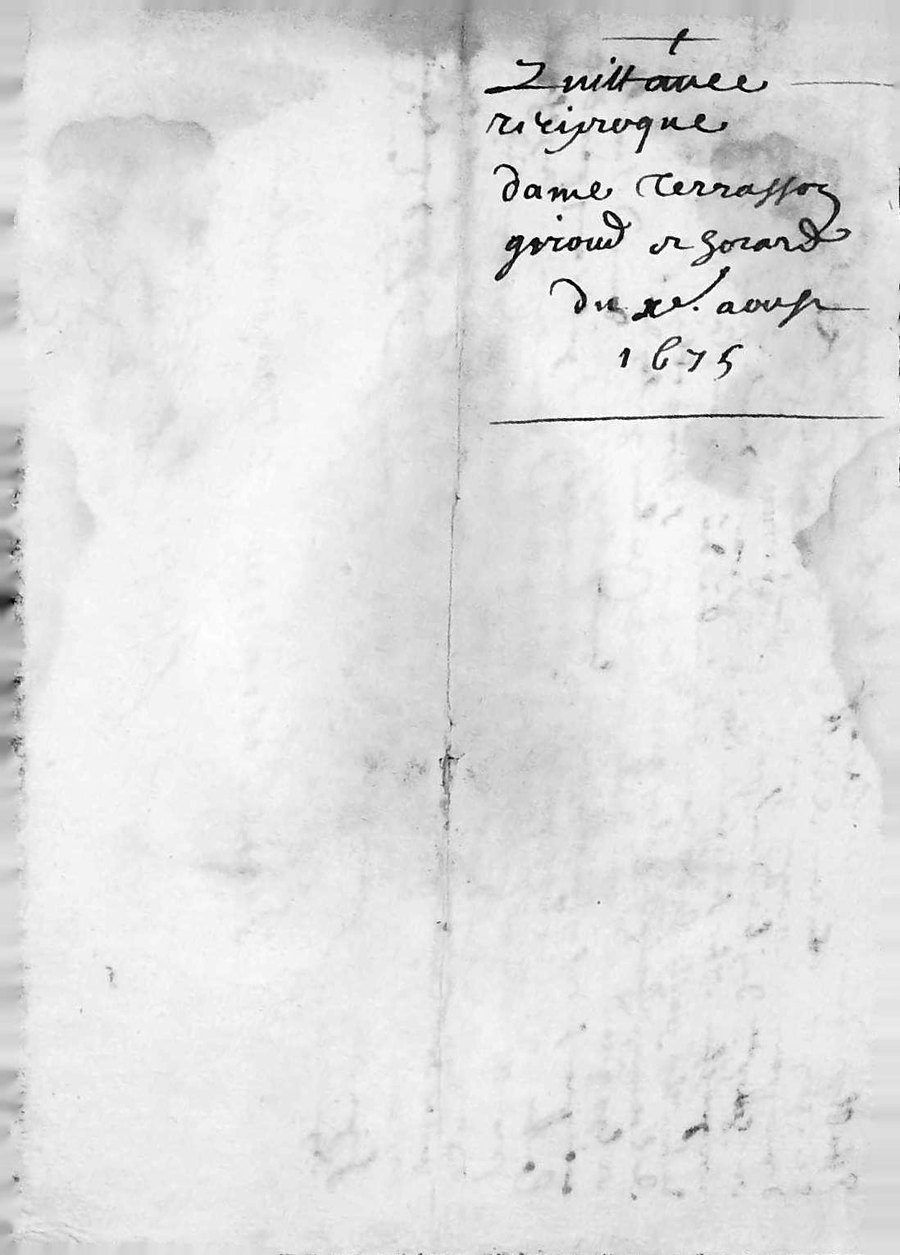 Quittance
reciproque
dame Terrasson
giroud et
du xe. aoust
1675